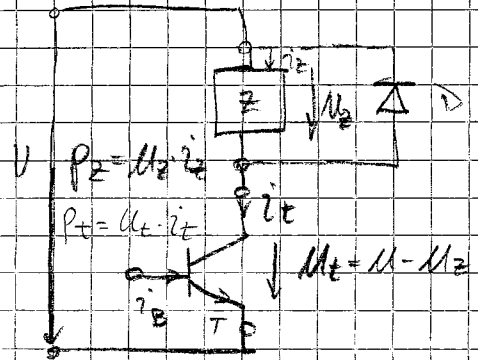 i_z
Z
u_z
D
U
p_z = u_z · i_z
i_t
p_t = u_t · i_t
u_t = u - u_z
i_B
T